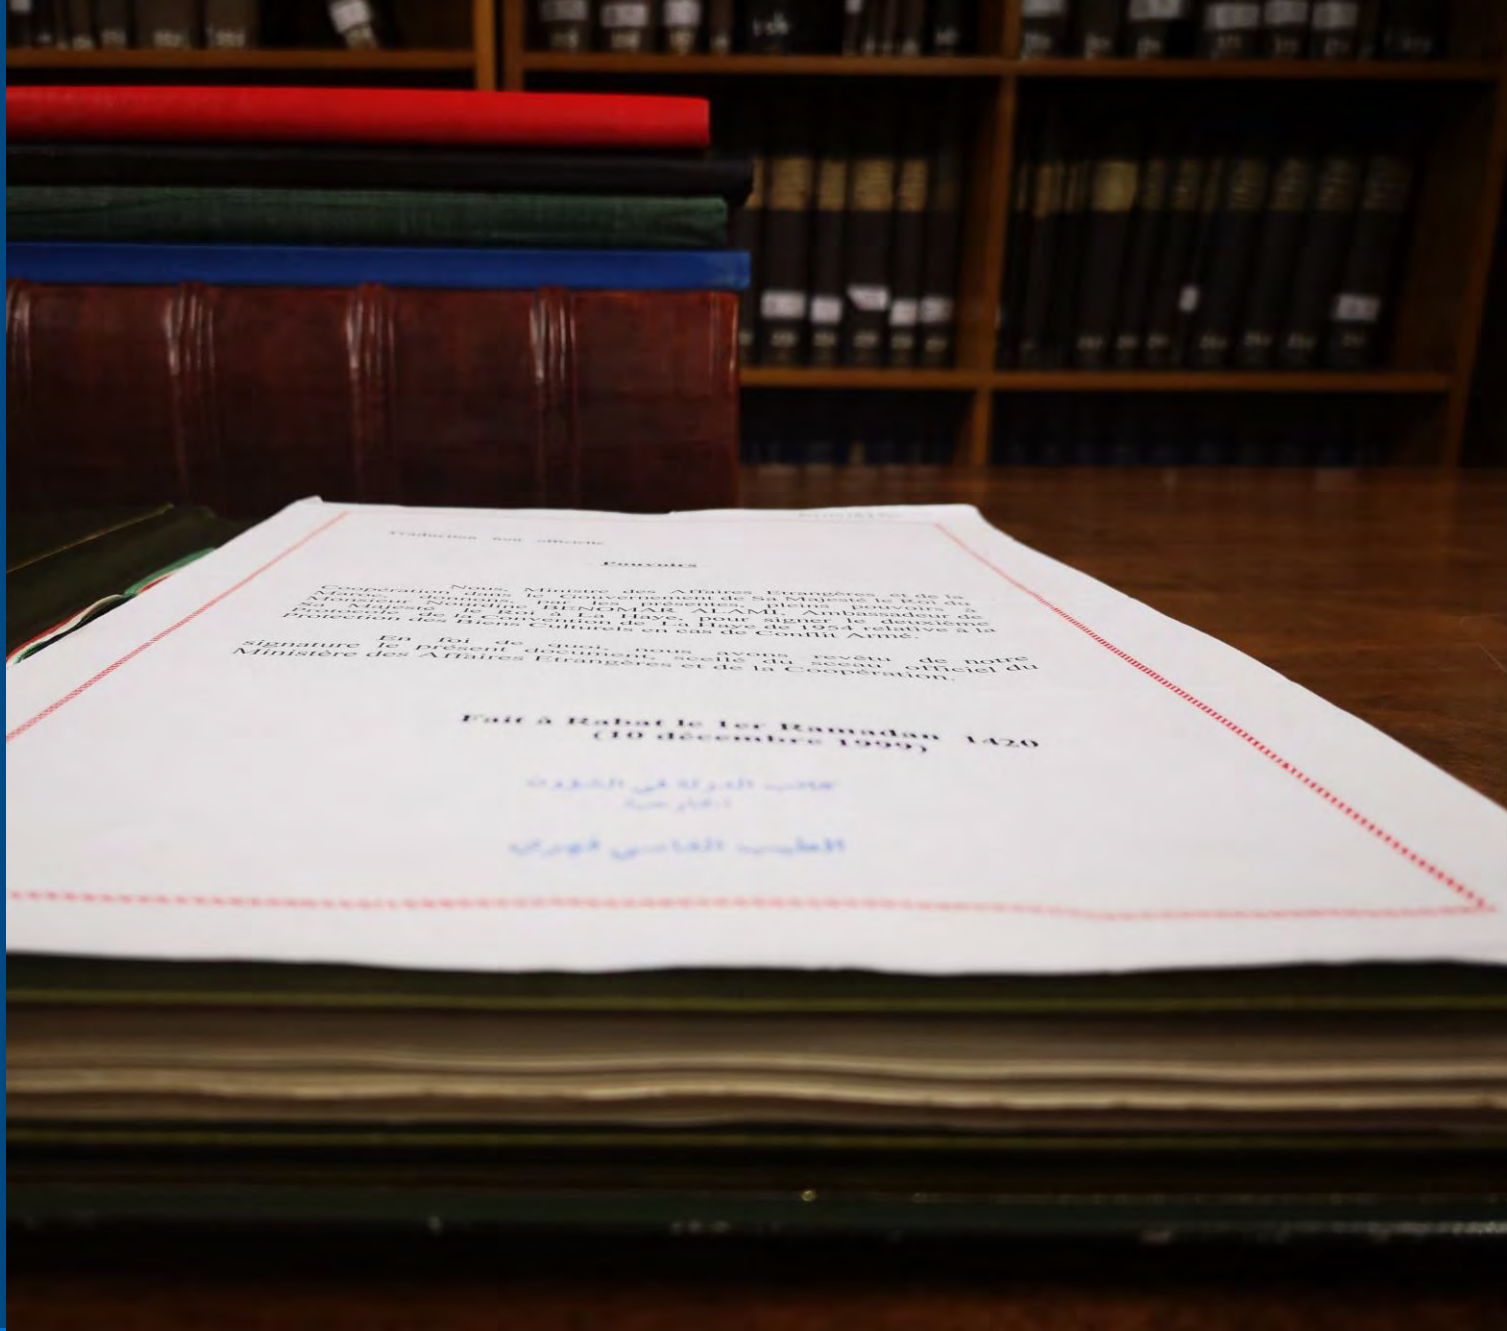 Traduction non officielle
Pouvoirs
Nous, Ministre des Affaires Etrangères et de la
Coopération dans le Gouvernement de Sa Majesté le Roi du
Maroc, donnons, par les présentes, pleins pouvoirs à
Monsieur Nourdine BENOMAR ALAMI, Ambassadeur de
Sa Majesté le Roi à La Haye, pour signer le deuxième
Protocole de la Convention de La Haye de 1954 relative à la
Protection des Biens Culturels en cas de Conflit Armé.
En foi de quoi, nous avons revêtu de notre
signature le présent document, scellé du sceau officiel du
Ministère des Affaires Etrangères et de la Coopération.
Fait à Rabat le 1er Ramadan 1420
(10 décembre 1999)
كاتب الدولة في الشؤون
الخارجية
الطيب الفاسي فهري